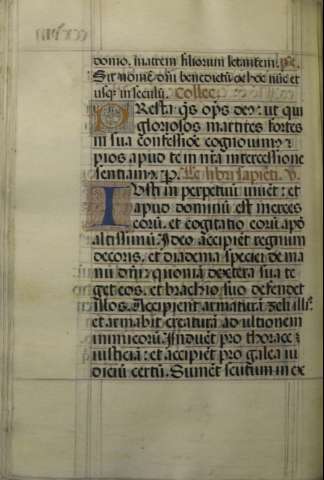 domo. matrem filiorum letantem. ps̄.
Sit nomē dn̄i benedictū ex hoc nūc et
usq̄ in seculū. Collec.
Presta q̄s op̄s deꝰ: ut qui
gloriosos martires fortes
in sua confessiōe cognouimꝰ
pios apud te in nr̄a intercessione
sentiamꝰ. p. Le. libri sapiēti. V.
Iusti in perpetuū uiuēt: et
apud dominū est merces
eorū. et cogitatio eorū apd
altissimū. Ideo accipiēt regnum
decoris. et diadema speciei de ma
nu dn̄i: quoniā dextera sua te
get eos. et brachio suo defendet
illos. Accipient armaturā zeli illiꝰ.
et armabit creaturā ad ultionem
inimicorū. Induet pro thorace
iusticiā: et accipiet pro galea iu
diciū certū. Sumet scutum in ex